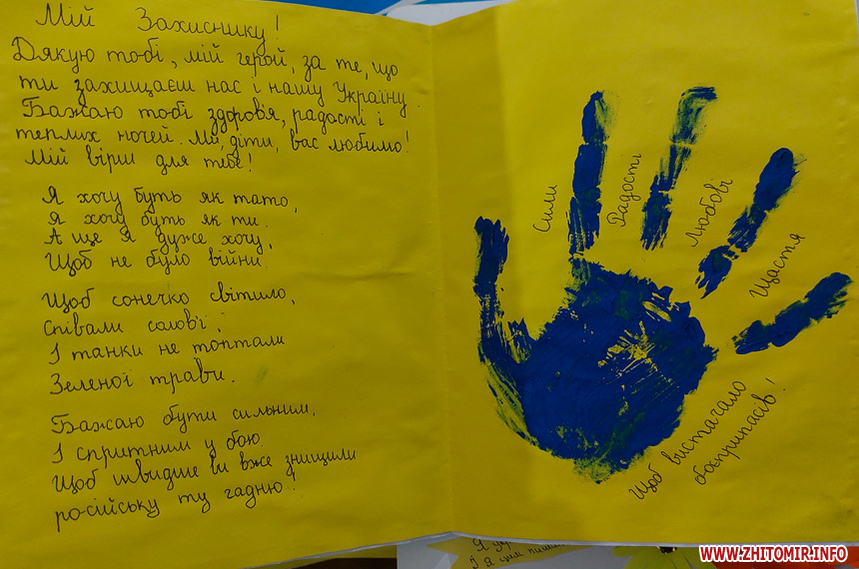 Мій Захиснику!
Дякую тобі, мій герой, за те, що
ти захищаєш нас і нашу Україну.
Бажаю тобі здоров'я, радості і
теплих ночей. Ми, діти, вас любимо!
Мій вірш для тебе!
Я хочу буть як тато,
Я хочу буть як ти.
А ще я дуже хочу,
Щоб не було війни.
Щоб сонечко світило,
Співали солов'ї,
І танки не топтали
Зеленої трави.
Бажаю бути сильним,
І спритним у бою.
Щоб швидше ви вже знищили
російську ту гадню!
Сили
Радость
Любові
Щастя
Щоб вистачало
боєприпасів!
WWW.ZHITOMIR.INFO